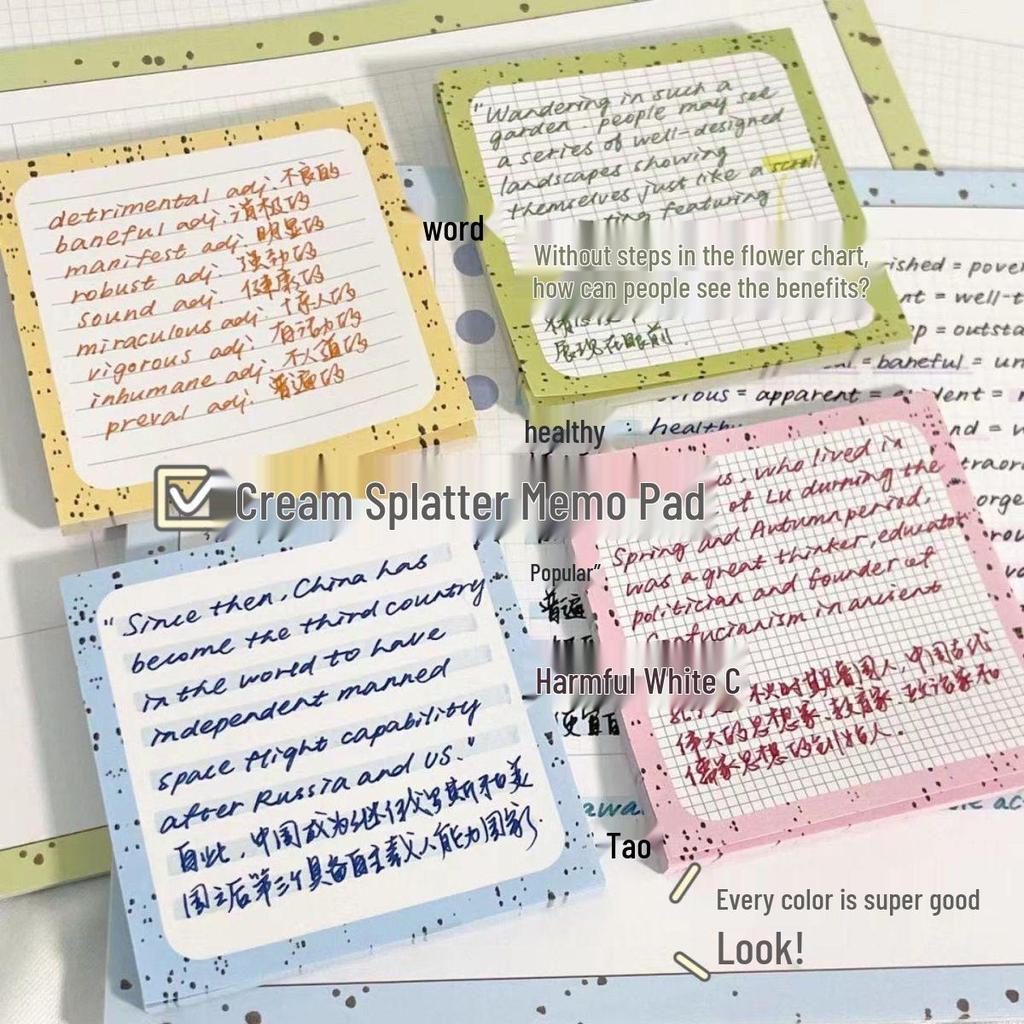 detrimental adj. 不良的
baneful adj. 消极的
manifest adj. 明显的
robust adj. 强劲的
sound adj. 健康的
miraculous adj. 惊人的
vigorous adj. 有活力的
inhumane adj. 不人道的
preval adj. 普遍的
word
"Wandering in such a
garden. people may see
a series of well-designed
landscapes showing
themselves just like a scroll
ting featuring
Without steps in the flower chart,
how can people see the benefits?
展现在眼前
ished = pover
nt = well-t
p = outsta
al = baneful = un
ious = apparent = evident = m
healthy
nd = w
traor
healthy
Cream Splatter Memo Pad
us, who lived in
of Lu durning the
Spring and Autumn period,
was a great thinker, educator
politician and founder of
Confucianism in ancient
中国古代
伟大的思想家、教育家、政治家和
儒家思想的创始人.
Popular”
普遍
Harmful White C
"Since then, China has
become the third country
in the world to have
independent manned
space flight capability
after Russia and US."
自此, 中国成为继俄罗斯和美
国之后第三个具备自主载人能力国家.
Tao
Every color is super good
Look!